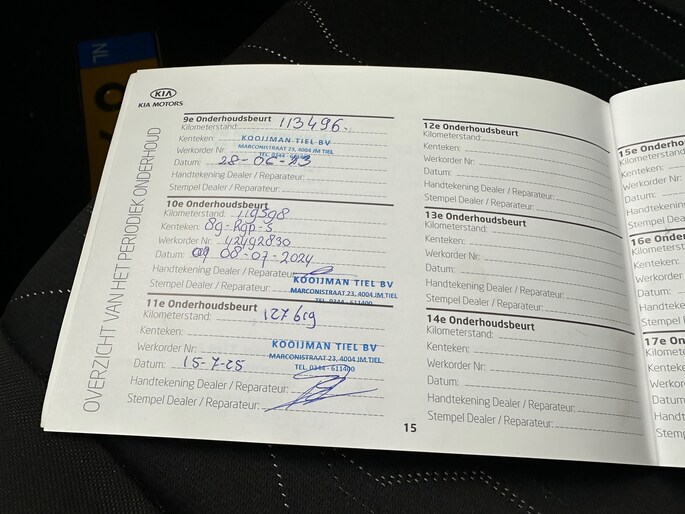 NL
KIA
KIA MOTORS
OVERZICHT VAN HET PERIODIEK ONDERHOUD
9e Onderhoudsbeurt
Kilometerstand: 113496.
Kenteken:
KOOIJMAN TIEL BV
MARCONISTRAAT 23, 4004 JM TIEL
TEL. 0344 - 611400
Werkorder Nr:
Datum: 28-06-23
Handtekening Dealer / Reparateur:
Stempel Dealer / Reparateur:
10e Onderhoudsbeurt
Kilometerstand: 119598
Kenteken: 8g-Rgp-s
Werkorder Nr: 42492830
Datum: 08-07-2024
Handtekening Dealer / Reparateur:
Stempel Dealer / Reparateur:
KOOIJMAN TIEL BV
MARCONISTRAAT 23, 4004 JM TIEL
TEL. 0344 - 611400
11e Onderhoudsbeurt
Kilometerstand: 127619
Kenteken:
KOOIJMAN TIEL BV
MARCONISTRAAT 23, 4004 JM TIEL
TEL. 0344 - 611400
Werkorder Nr:
Datum: 15-7-25
Handtekening Dealer / Reparateur:
Stempel Dealer / Reparateur:
12e Onderhoudsbeurt
Kilometerstand:
Kenteken:
Werkorder Nr:
Datum:
Handtekening Dealer / Reparateur:
Stempel Dealer / Reparateur:
13e Onderhoudsbeurt
Kilometerstand:
Kenteken:
Werkorder Nr:
Datum:
Handtekening Dealer / Reparateur:
Stempel Dealer / Reparateur:
14e Onderhoudsbeurt
Kilometerstand:
Kenteken:
Werkorder Nr:
Datum:
Handtekening Dealer / Reparateur:
Stempel Dealer / Reparateur:
15
15e Onderho
Kilometerstand
Kenteken:
Werkorder Nr:
Datum:
Handtekening
Stempel Deal
16e Onder
Kilometersta
Kenteken:
Werkorder
Datum:
Handteken
Stempel D
17e On
Kilomete
Kenteke
Werko
Datum
Handt
Stemp